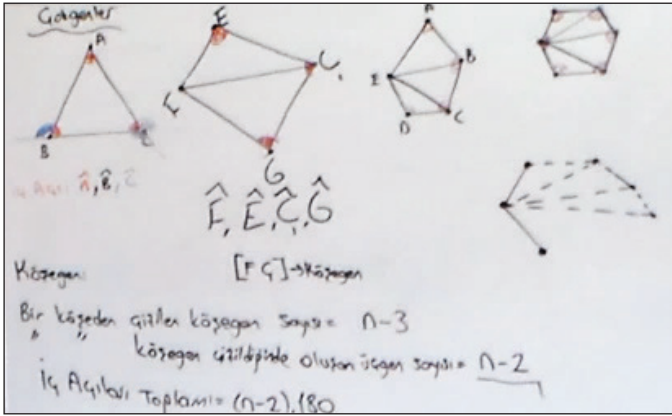 Çokgenler
A
B
C
E
Ç
F
G
A
B
C
D
E
İç Açı: Â, B̂, Ĉ
F̂, Ê, Ç̂, Ĝ
Köşegen:
[FÇ]→Köşegen
Bir köşeden çizilen köşegen sayısı = n-3
" " köşegen çizildiğinde oluşan üçgen sayısı = n-2
İç Açıları Toplamı = (n-2).180